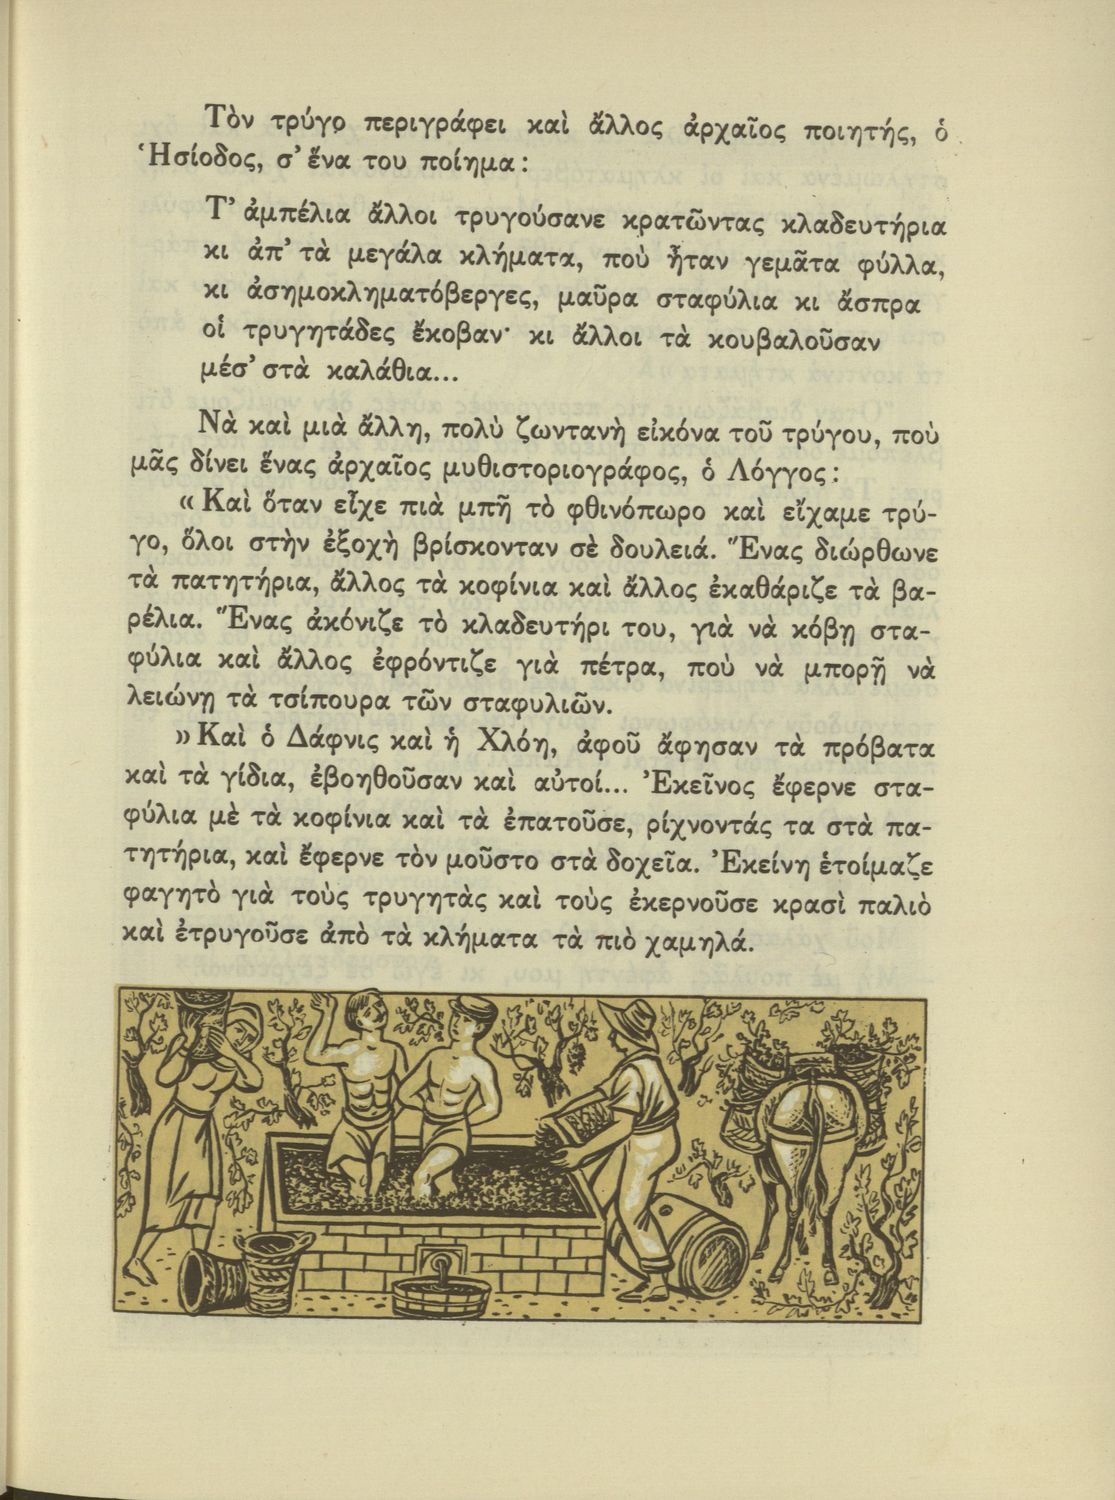 Τὸν τρύγο περιγράφει καὶ ἄλλος ἀρχαῖος ποιητής, ὁ
Ἡσίοδος, σ' ἕνα του ποίημα:
Τ' ἀμπέλια ἄλλοι τρυγούσανε κρατῶντας κλαδευτήρια
κι ἀπ' τὰ μεγάλα κλήματα, ποὺ ἦταν γεμᾶτα φύλλα,
κι ἀσημοκληματόβεργες, μαῦρα σταφύλια κι ἄσπρα
οἱ τρυγητάδες ἔκοβαν· κι ἄλλοι τὰ κουβαλοῦσαν
μέσ' στὰ καλάθια...
Νὰ καὶ μιὰ ἄλλη, πολὺ ζωντανὴ εἰκόνα τοῦ τρύγου, ποὺ
μᾶς δίνει ἕνας ἀρχαῖος μυθιστοριογράφος, ὁ Λόγγος:
«Καὶ ὅταν εἶχε πιὰ μπῆ τὸ φθινόπωρο καὶ εἴχαμε τρύ-
γο, ὅλοι στὴν ἐξοχὴ βρίσκονταν σὲ δουλειά. Ἕνας διώρθωνε
τὰ πατητήρια, ἄλλος τὰ κοφίνια καὶ ἄλλος ἐκαθάριζε τὰ βα-
ρέλια. Ἕνας ἀκόνιζε τὸ κλαδευτήρι του, γιὰ νὰ κόβῃ στα-
φύλια καὶ ἄλλος ἐφρόντιζε γιὰ πέτρα, ποὺ νὰ μπορῇ νὰ
λειώνῃ τὰ τσίπουρα τῶν σταφυλιῶν.
»Καὶ ὁ Δάφνις καὶ ἡ Χλόη, ἀφοῦ ἄφησαν τὰ πρόβατα
καὶ τὰ γίδια, ἐβοηθοῦσαν καὶ αὐτοί... Ἐκεῖνος ἔφερνε στα-
φύλια μὲ τὰ κοφίνια καὶ τὰ ἐπατοῦσε, ρίχνοντάς τα στὰ πα-
τητήρια, καὶ ἔφερνε τὸν μοῦστο στὰ δοχεῖα. Ἐκείνη ἑτοίμαζε
φαγητὸ γιὰ τοὺς τρυγητὰς καὶ τοὺς ἐκερνοῦσε κρασὶ παλιὸ
καὶ ἐτρυγοῦσε ἀπὸ τὰ κλήματα τὰ πιὸ χαμηλά.